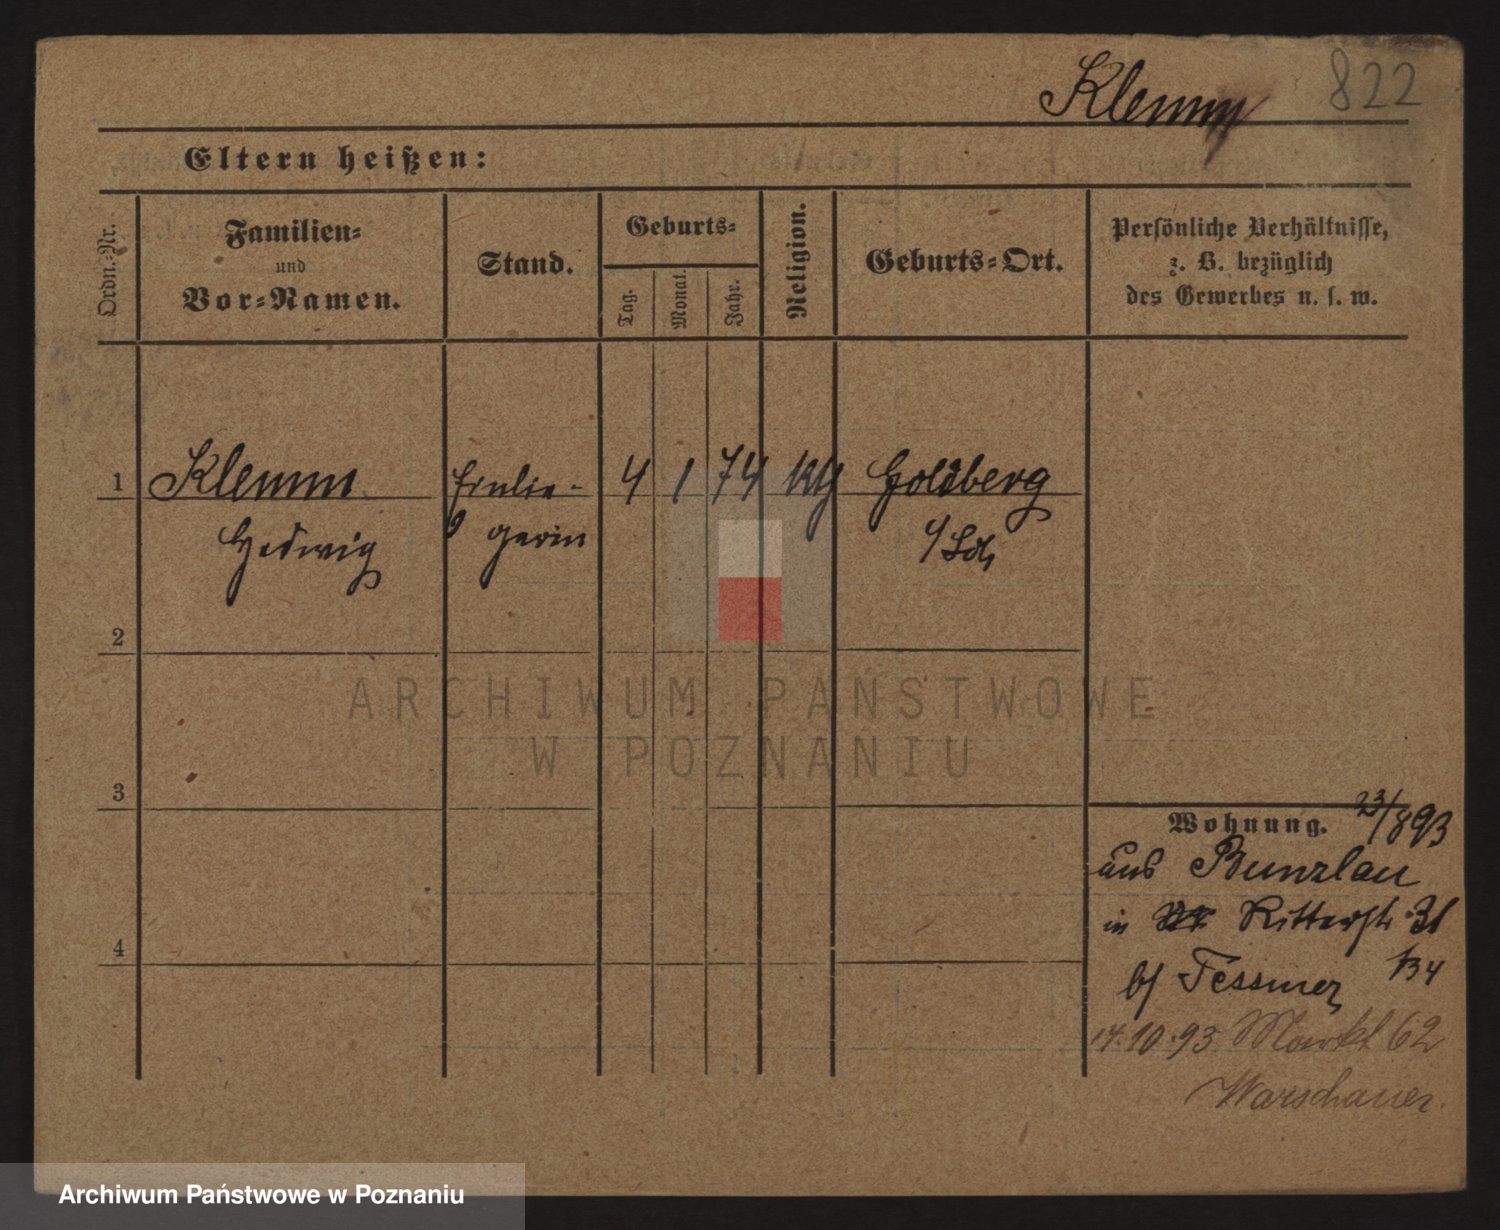 Klemm 822
Eltern heißen:
Ordn.-Nr.
Familien-
und
Vor-Namen.
Stand.
Geburts-
Tag.
Monat.
Jahr.
Religion.
Geburts-Ort.
Persönliche Verhältnisse,
z. B. bezüglich
des Gewerbes u. s. w.
1 Klemm 4 1 74 Goldberg
Hedwig gerin
2
3
4
ARCHIWUM PAŃSTWOWE
W POZNANIU
Wohnung. 23/893
aus Bunzlau
in Ritterstr. 31
b/ Tessmer
14.10.93 Markt 62
Warschauer.
Archiwum Państwowe w Poznaniu